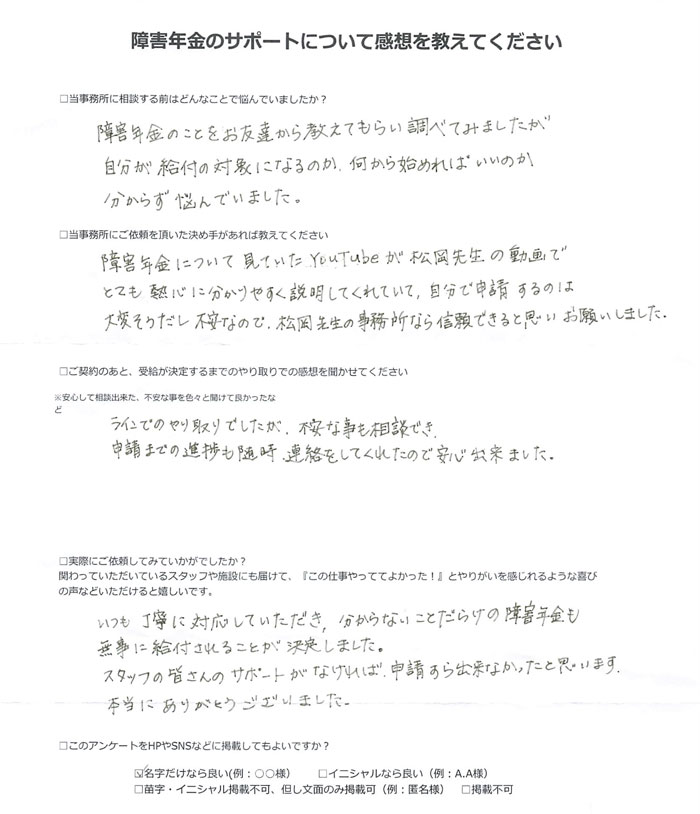 障害年金のサポートについて感想を教えてください
□当事務所に相談する前はどんなことで悩んでいましたか？
障害年金のことをお友達から教えてもらい調べてみましたが
自分が給付の対象になるのか、何から始めればいいのか
分からず悩んでいました。
□当事務所にご依頼を頂いた決め手があれば教えてください
障害年金について見ていたYouTubeが松岡先生の動画で
とても熱心に分かりやすく説明してくれていて、自分で申請するのは
大変そうだし不安なので、松岡先生の事務所なら信頼できると思いお願いしました.
□ご契約のあと、受給が決定するまでのやり取りでの感想を聞かせてください
※安心して相談出来た、不安な事を色々と聞けて良かったな
ど
ラインでのやり取りでしたが、不安な事も相談でき、
申請までの進捗も随時、連絡をしてくれたので安心出来ました。
□実際にご依頼してみていかがでしたか？
関わっていただいているスタッフや施設にも届けて、『この仕事やっててよかった！』とやりがいを感じれるような喜び
の声などいただけると嬉しいです。
いつも丁寧に対応していただき、分からないことだらけの障害年金も
無事に給付されることが決定しました。
スタッフの皆さんのサポートがなければ、申請すら出来なかったと思います.
本当にありがとうございました.
□このアンケートをHPやSNSなどに掲載してもよいですか？
☑名字だけなら良い(例：○○様) □イニシャルなら良い（例：A.A様）
□苗字・イニシャル掲載不可、但し文面のみ掲載可（例：匿名様） □掲載不可